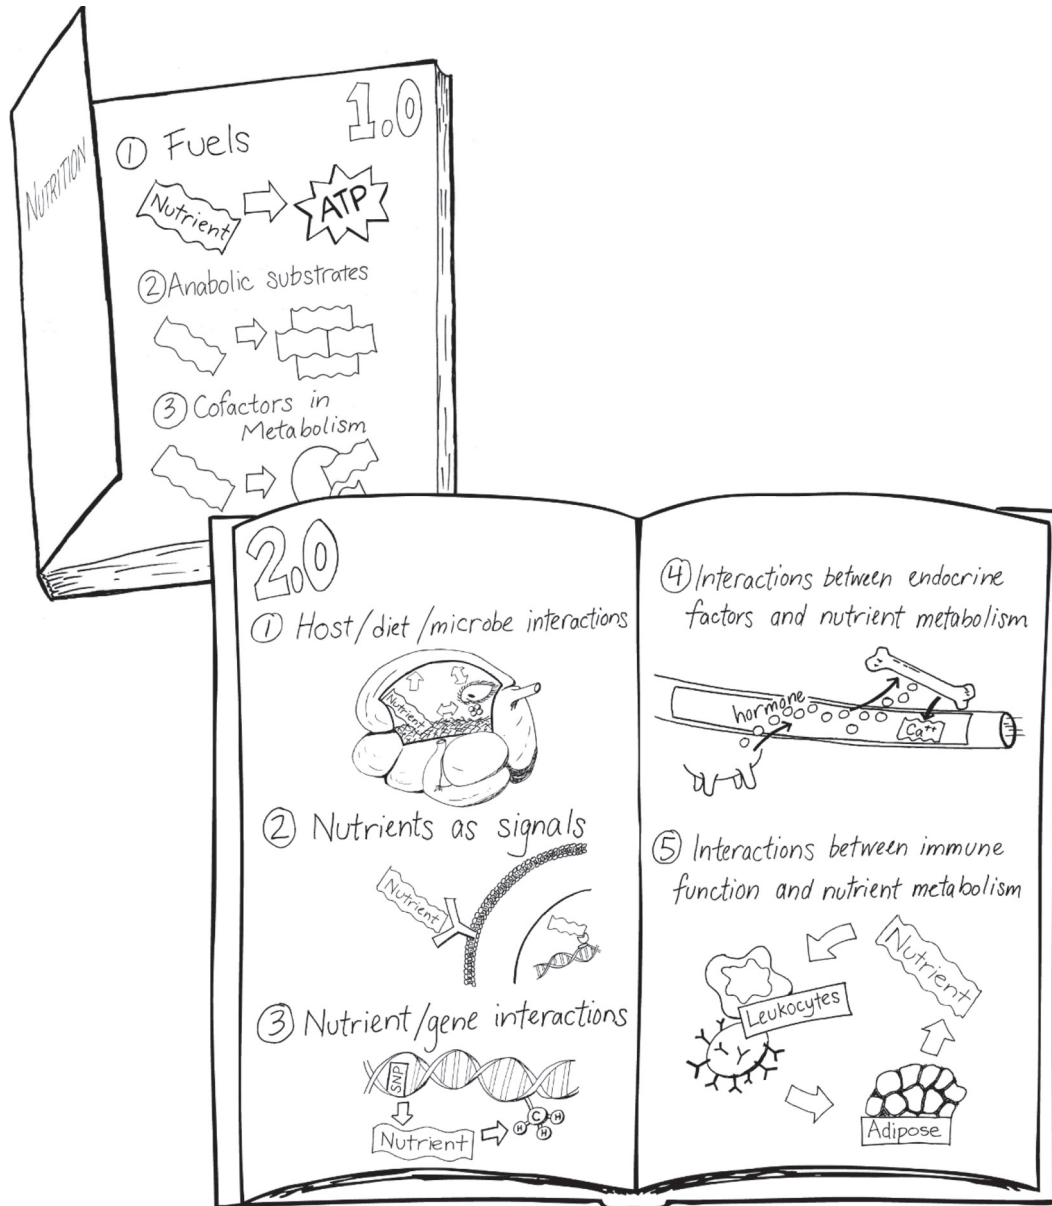 NUTRITION
1.0
① Fuels
Nutrient
ATP
② Anabolic substrates
③ Cofactors in
Metabolism
2.0
① Host/diet/microbe interactions
Nutrient
② Nutrients as signals
Nutrient
③ Nutrient/gene interactions
SNP
C
H
H
H
Nutrient
④ Interactions between endocrine
factors and nutrient metabolism
hormone
Ca++
⑤ Interactions between immune
function and nutrient metabolism
Nutrient
Leukocytes
Adipose